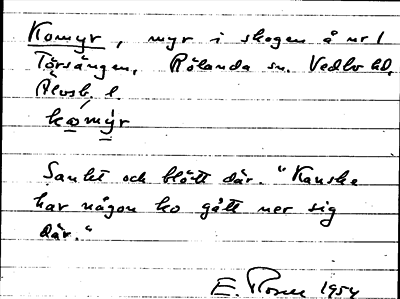 Komyr, myr i skogen å nr 1
Törsängen, Rölanda sn. Vedbo hd.
Älvsb. l.
kọmýr
Sankt och blött där. "Kanske
har någon ko gått ner sig
där."
E. 1954